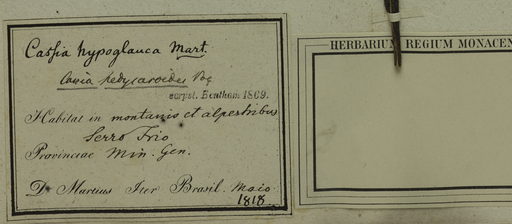 Cassia hypoglauca Mart.
Cassia hedysaroides Vog
earpst. Bentham 1869.
Habitat in montanis et alpestribus
Serro Frio
Provinciae Min. Gen.
D. Martius Iter Brasil. Maio
1818.
HERBARIUM REGIUM MONACEN